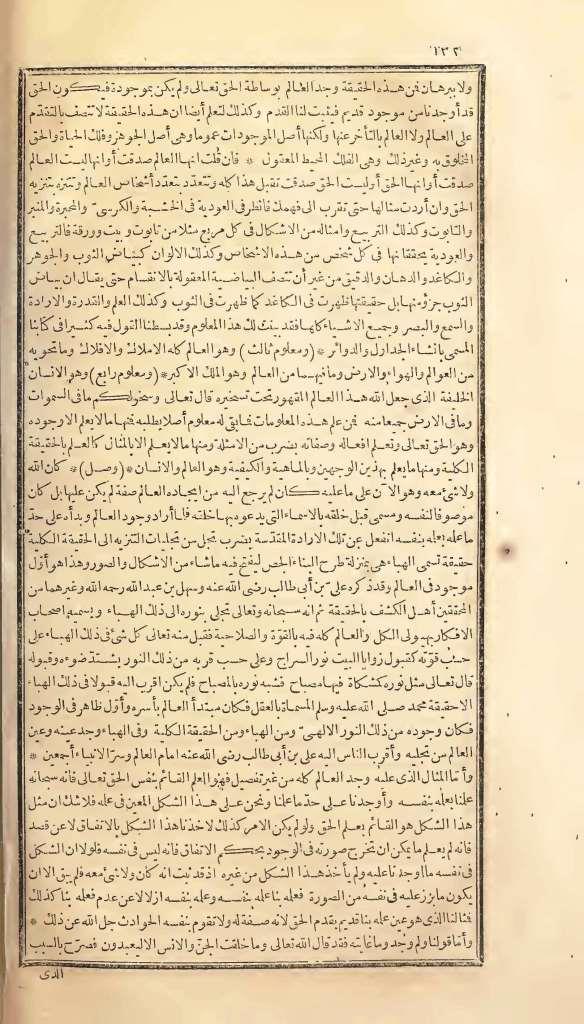 ١٣٢
ولا ببرهان فمن هذه الحقيقة وجد العالم بوساطة الحق تعالى ولم يكن بموجودة فيكون الحق
قد أوجدنا من موجود قديم فيثبت لنا القدم وكذلك لتعلم أيضا ان هذه الحقيقة لا تتصف بالتقدم
على العالم ولا العالم بالتأخر عنها ولكنها أصل الموجودات عموما وهى أصل الجوهر وفلك الحياة والحق
المخلوق به وغير ذلك وهى الفلك المحيط المعقول * فان قلت انها العالم صدقت أوانها ليست العالم
صدقت أو انها الحق أو ليست الحق صدقت تقبل هذا كله وتتعدد بتعدد أشخاص العالم وتتنزه بتنزيه
الحق وان أردت مثالها حتى تقرب الى فهمك فانظر فى العودية فى الخشبة والكرسى والمحبرة والمنبر
والتابوت وكذلك التربيع وأمثاله من الاشكال فى كل مربع مثلا من تابوت وبيت وورقة فالتربيع
والعودية بحقيقتها فى كل شخص من هذه الاشخاص وكذلك الالوان كبياض الثوب والجوهر
والكاغد والدهان والدقيق من غير أن تتصف البياضية المعقولة بالانقسام حتى يقال ان بياض
الثوب جزؤ منها بل حقيقتها ظهرت فى الكاغد كما ظهرت فى الثوب وكذلك العلم والقدرة والارادة
والسمع والبصر وجميع الاشياء كلها فقد بينت لك هذا المعلوم وقد بسطنا القول فيه كثيرا فى كتابنا
المسمى بانشاء الجداول والدوائر * (ومعلوم ثالث) وهو العالم كله الاملاك والافلاك وما تحويه
من العوالم والهواء والارض وما فيهـما من العالم وهو الملك الاكبر * (ومعلوم رابع) وهو الانسان
الخليفة الذى جعل الله هذا العالم المقهور تحت تسخيره قال تعالى وسخر لكم ما فى السموات
وما فى الارض جميعا منه فمن علم هذه المعلومات فما بقى له معلوم أصلا يطلبه فمنها ما لا يعلم الا وجوده
وهو الحق تعالى وتعلم افعاله وصفاته بضرب من الامثلة ومنها ما لا يعلم الا بالمثال كالعلم بالحقيقة
الكلية ومنها ما يعلم بهذين الوجهين وبالماهية والكيفية وهو العالم والانسان * (وصل) * كان الله
ولا شئ معه وهو الآن على ما عليه كان لم يرجع اليه من ايجاده العالم صفة لم يكن عليها بل كان
موصوفا لنفسه ومسمى قبل خلقه بالاسماء التى يدعوه بها خلقه فلما أراد وجود العالم وبدأه على حد
ما علمه بعلمه بنفسه انفعل عن تلك الارادة المقدسة بضرب تجل من تجليات التنزيه الى الحقيقة الكلية
حقيقة تسمى الهباء هى بمنزلة طرح البناء الجص ليفتح فيه ما شاء من الاشكال والصور وهذا هو أول
موجود فى العالم وقد ذكره على بن أبى طالب رضى الله عنه وسهل بن عبد الله رحمه الله وغيرهما من
المحققين أهل الكشف بالحقيقة ثم انه سبحانه وتعالى تجلى بنوره الى ذلك الهباء ويسميه اصحاب
الافكار بهيولى الكل والعالم كله فيه بالقوة والصلاحية فقبل منه تعالى كل شئ فى ذلك الهباء على
حسب قوته كقبول زوايا البيت نور السراج وعلى حسب قربه من ذلك النور يشتد ضوءه وقبوله
قال تعالى مثل نوره كمشكاة فيها مصباح فشبه نوره بالمصباح فلم يكن اقرب اليه قبولا فى ذلك الهباء
الا حقيقة محمد صلى الله عليه وسلم المسماة بالعقل فكان مبتدأ العالم بأسره وأول ظاهر فى الوجود
فكان وجوده من ذلك النور الالهى ومن الهباء ومن الحقيقة الكلية وفى الهباء وجد عينه وعين
العالم من تجليه وأقرب الناس اليه على بن أبى طالب رضى الله عنه امام العالم وسر الانبياء أجمعين *
وأما المثال الذى عليه وجد العالم كله من غير تفصيل فهو العلم القائم بنفس الحق تعالى فانه سبحانه
علمنا بعلمه بنفسه وأوجدنا على حد ما علمنا ونحن على هذا الشكل المعين فى علمه فلا شك ان مثل
هذا الشكل هو القائم بعلم الحق ولو لم يكن الامر كذلك لاخذنا هذا الشكل بالاتفاق لا عن قصد
فانه لم يعلم ما يمكن ان تخرج صورته فى الوجود بحكم الاتفاق فانه ليس فى نفسه فلولا ان الشكل
فى نفسه ما أوجدنا عليه ولم يأخذ هذا الشكل من غيره اذ قد ثبت انه كان ولا شئ معه فلم يبق الا ان
يكون ما برز عليه فى نفسه من الصورة فعلمه بنا علمه بنفسه وعلمه بنفسه ازلا لا عن عدم فعلمه بنا كذلك
فمثالنا الذى هو عين علمه بنا قديم بقدم الحق لانه صفة له ولا تقوم بنفسه الحوادث جل الله عن ذلك *
وأما قولنا ولم وجد وما غايته فقد قال الله تعالى وما خلقت الجن والانس الا ليعبدون فصرح بالسبب
الذى